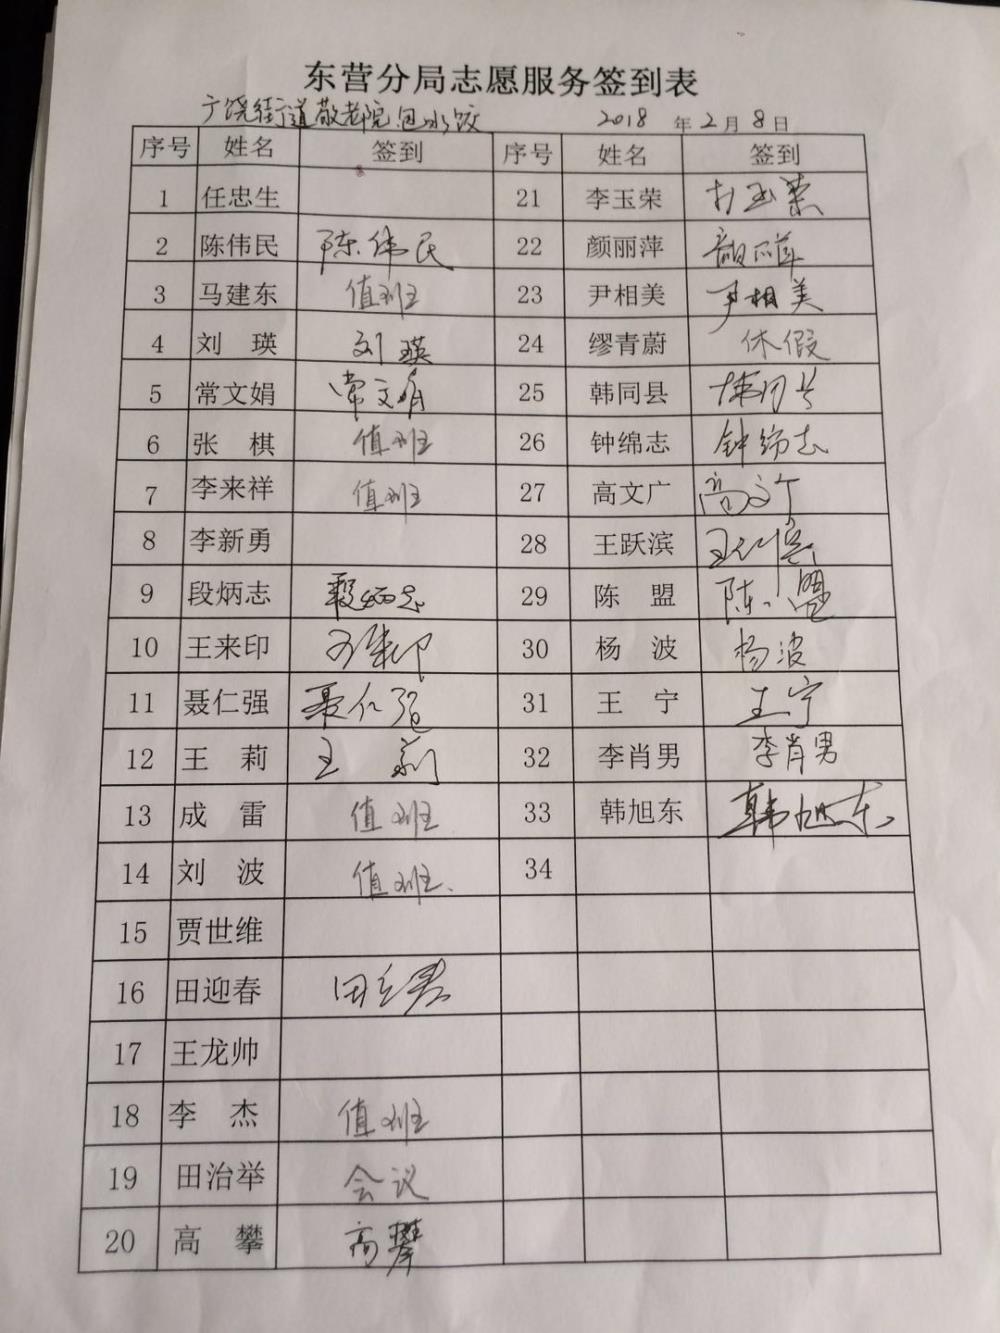 东营分局志愿服务签到表
广饶街道敬老院包水饺 2018 年 2 月 8 日
序号 姓名 签到 序号 姓名 签到
1 任忠生 21 李玉荣 李玉荣
2 陈伟民 陈伟民 22 颜丽萍 颜丽萍
3 马建东 值班 23 尹相美 尹相美
4 刘 瑛 刘瑛 24 缪青蔚 休假
5 常文娟 常文娟 25 韩同县 韩同县
6 张 棋 值班 26 钟绵志 钟绵志
7 李来祥 值班 27 高文广 高文广
8 李新勇 28 王跃滨 王跃滨
9 段炳志 段炳志 29 陈 盟 陈盟
10 王来印 王来印 30 杨 波 杨波
11 聂仁强 聂仁强 31 王 宁 王宁
12 王 莉 王莉 32 李肖男 李肖男
13 成 雷 值班 33 韩旭东 韩旭东
14 刘 波 值班. 34
15 贾世维
16 田迎春 田迎春
17 王龙帅
18 李 杰 值班
19 田治举 会议
20 高 攀 高攀